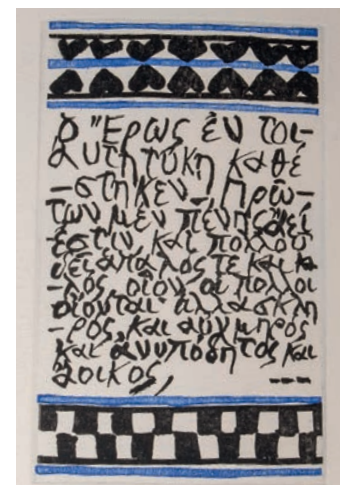 ὁ Ἔρως ἐν τοι-
αύτῃ τύχῃ καθέ
-στηκεν. Πρῶ-
των μὲν πένης ἀεί
ἐστιν, καὶ πολλοῦ
δεῖ ἁπαλός τε καὶ κα
-λός, οἷον οἱ πολλοὶ
οἴονται ἀλλὰ σκλη
-ρὸς καὶ αὐχμηρὸς
καὶ ἀνυπόδητος καὶ
ἄοικος,